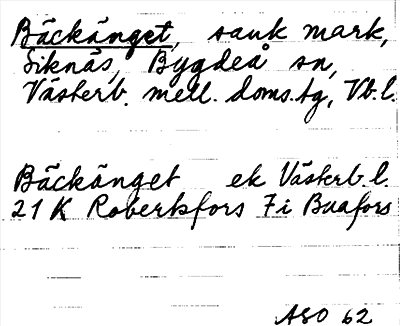 Bäckänget, sank mark,
Siknäs, Bygdeå sn,
Västerb. mell. doms.tg, Vb.l.
Bäckänget ek Västerb.l.
21 K Robertsfors 7i Buafors
ASO 62